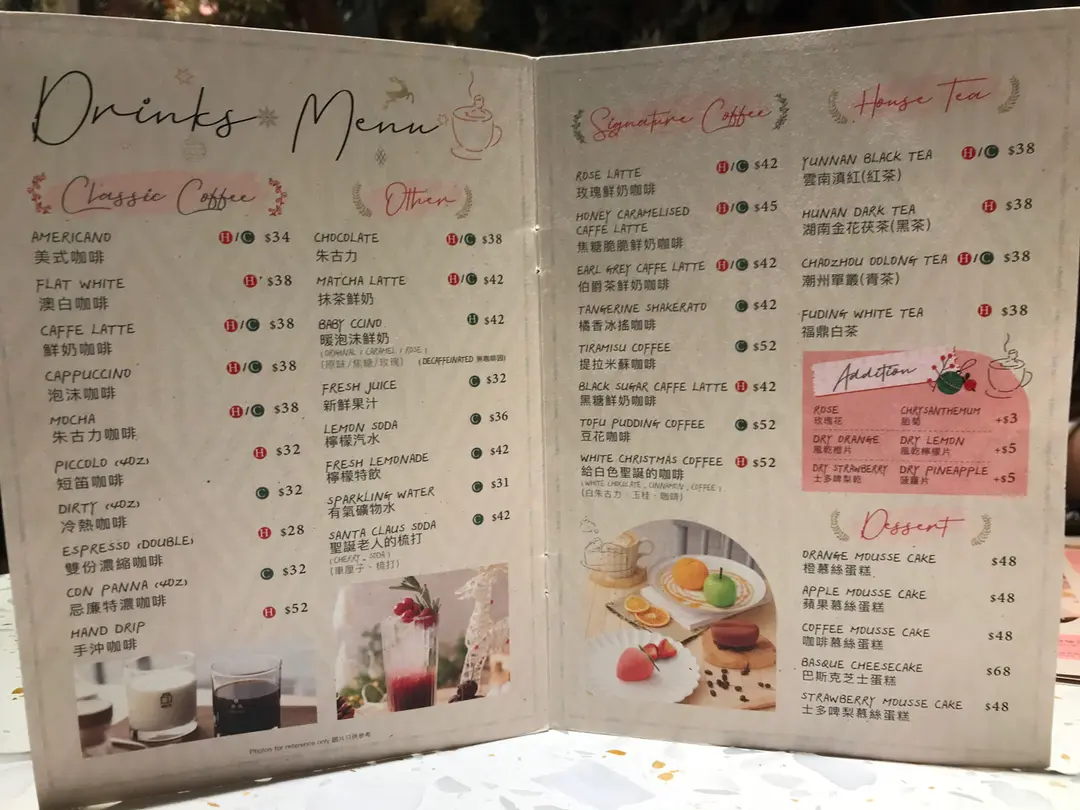 Drinks Menu
Classic Coffee
AMERICANO H/C $34
美式咖啡
FLAT WHITE H $38
澳白咖啡
CAFFE LATTE H/C $38
鮮奶咖啡
CAPPUCCINO H/C $38
泡沫咖啡
MOCHA H/C $38
朱古力咖啡
PICCOLO (4OZ) H $32
短笛咖啡
DIRTY (4OZ) C $32
冷熱咖啡
ESPRESSO (DOUBLE) H $28
雙份濃縮咖啡
CON PANNA (4OZ) C $32
忌廉特濃咖啡
HAND DRIP H $52
手沖咖啡
Other
CHOCOLATE H/C $38
朱古力
MATCHA LATTE H/C $42
抹茶鮮奶
BABY CCINO H $42
暖泡沫鮮奶
(ORIGINAL / CARAMEL / ROSE)
(原味/焦糖/玫瑰) (DECAFFEINATED 無咖啡因)
FRESH JUICE C $32
新鮮果汁
LEMON SODA C $36
檸檬汽水
FRESH LEMONADE C $42
檸檬特飲
SPARKLING WATER C $31
有氣礦物水
SANTA CLAUS SODA C $42
聖誕老人的梳打
(CHERRY, SODA)
(車厘子、梳打)
Photos for reference only 圖片只供參考
Signature Coffee
ROSE LATTE H/C $42
玫瑰鮮奶咖啡
HONEY CARAMELISED H/C $45
CAFFE LATTE
焦糖脆脆鮮奶咖啡
EARL GREY CAFFE LATTE H/C $42
伯爵茶鮮奶咖啡
TANGERINE SHAKERATO C $42
橘香冰搖咖啡
TIRAMISU COFFEE C $52
提拉米蘇咖啡
BLACK SUGAR CAFFE LATTE H $42
黑糖鮮奶咖啡
TOFU PUDDING COFFEE C $52
豆花咖啡
WHITE CHRISTMAS COFFEE H $52
給白色聖誕的咖啡
(WHITE CHOCOLATE, CINNAMON, COFFEE)
(白朱古力、玉桂、咖啡)
House Tea
YUNNAN BLACK TEA H/C $38
雲南滇紅(紅茶)
HUNAN DARK TEA H $38
湖南金花茯茶(黑茶)
CHAOZHOU OOLONG TEA H/C $38
潮州單叢(青茶)
FUDING WHITE TEA H $38
福鼎白茶
Addition
ROSE CHRYSANTHEMUM +$3
玫瑰花 胎菊
DRY ORANGE DRY LEMON +$5
風乾橙片 風乾檸檬片
DRY STRAWBERRY DRY PINEAPPLE +$5
士多啤梨乾 菠蘿片
Dessert
ORANGE MOUSSE CAKE $48
橙慕絲蛋糕
APPLE MOUSSE CAKE $48
蘋果慕絲蛋糕
COFFEE MOUSSE CAKE $48
咖啡慕絲蛋糕
BASQUE CHEESECAKE $68
巴斯克芝士蛋糕
STRAWBERRY MOUSSE CAKE $48
士多啤梨慕絲蛋糕